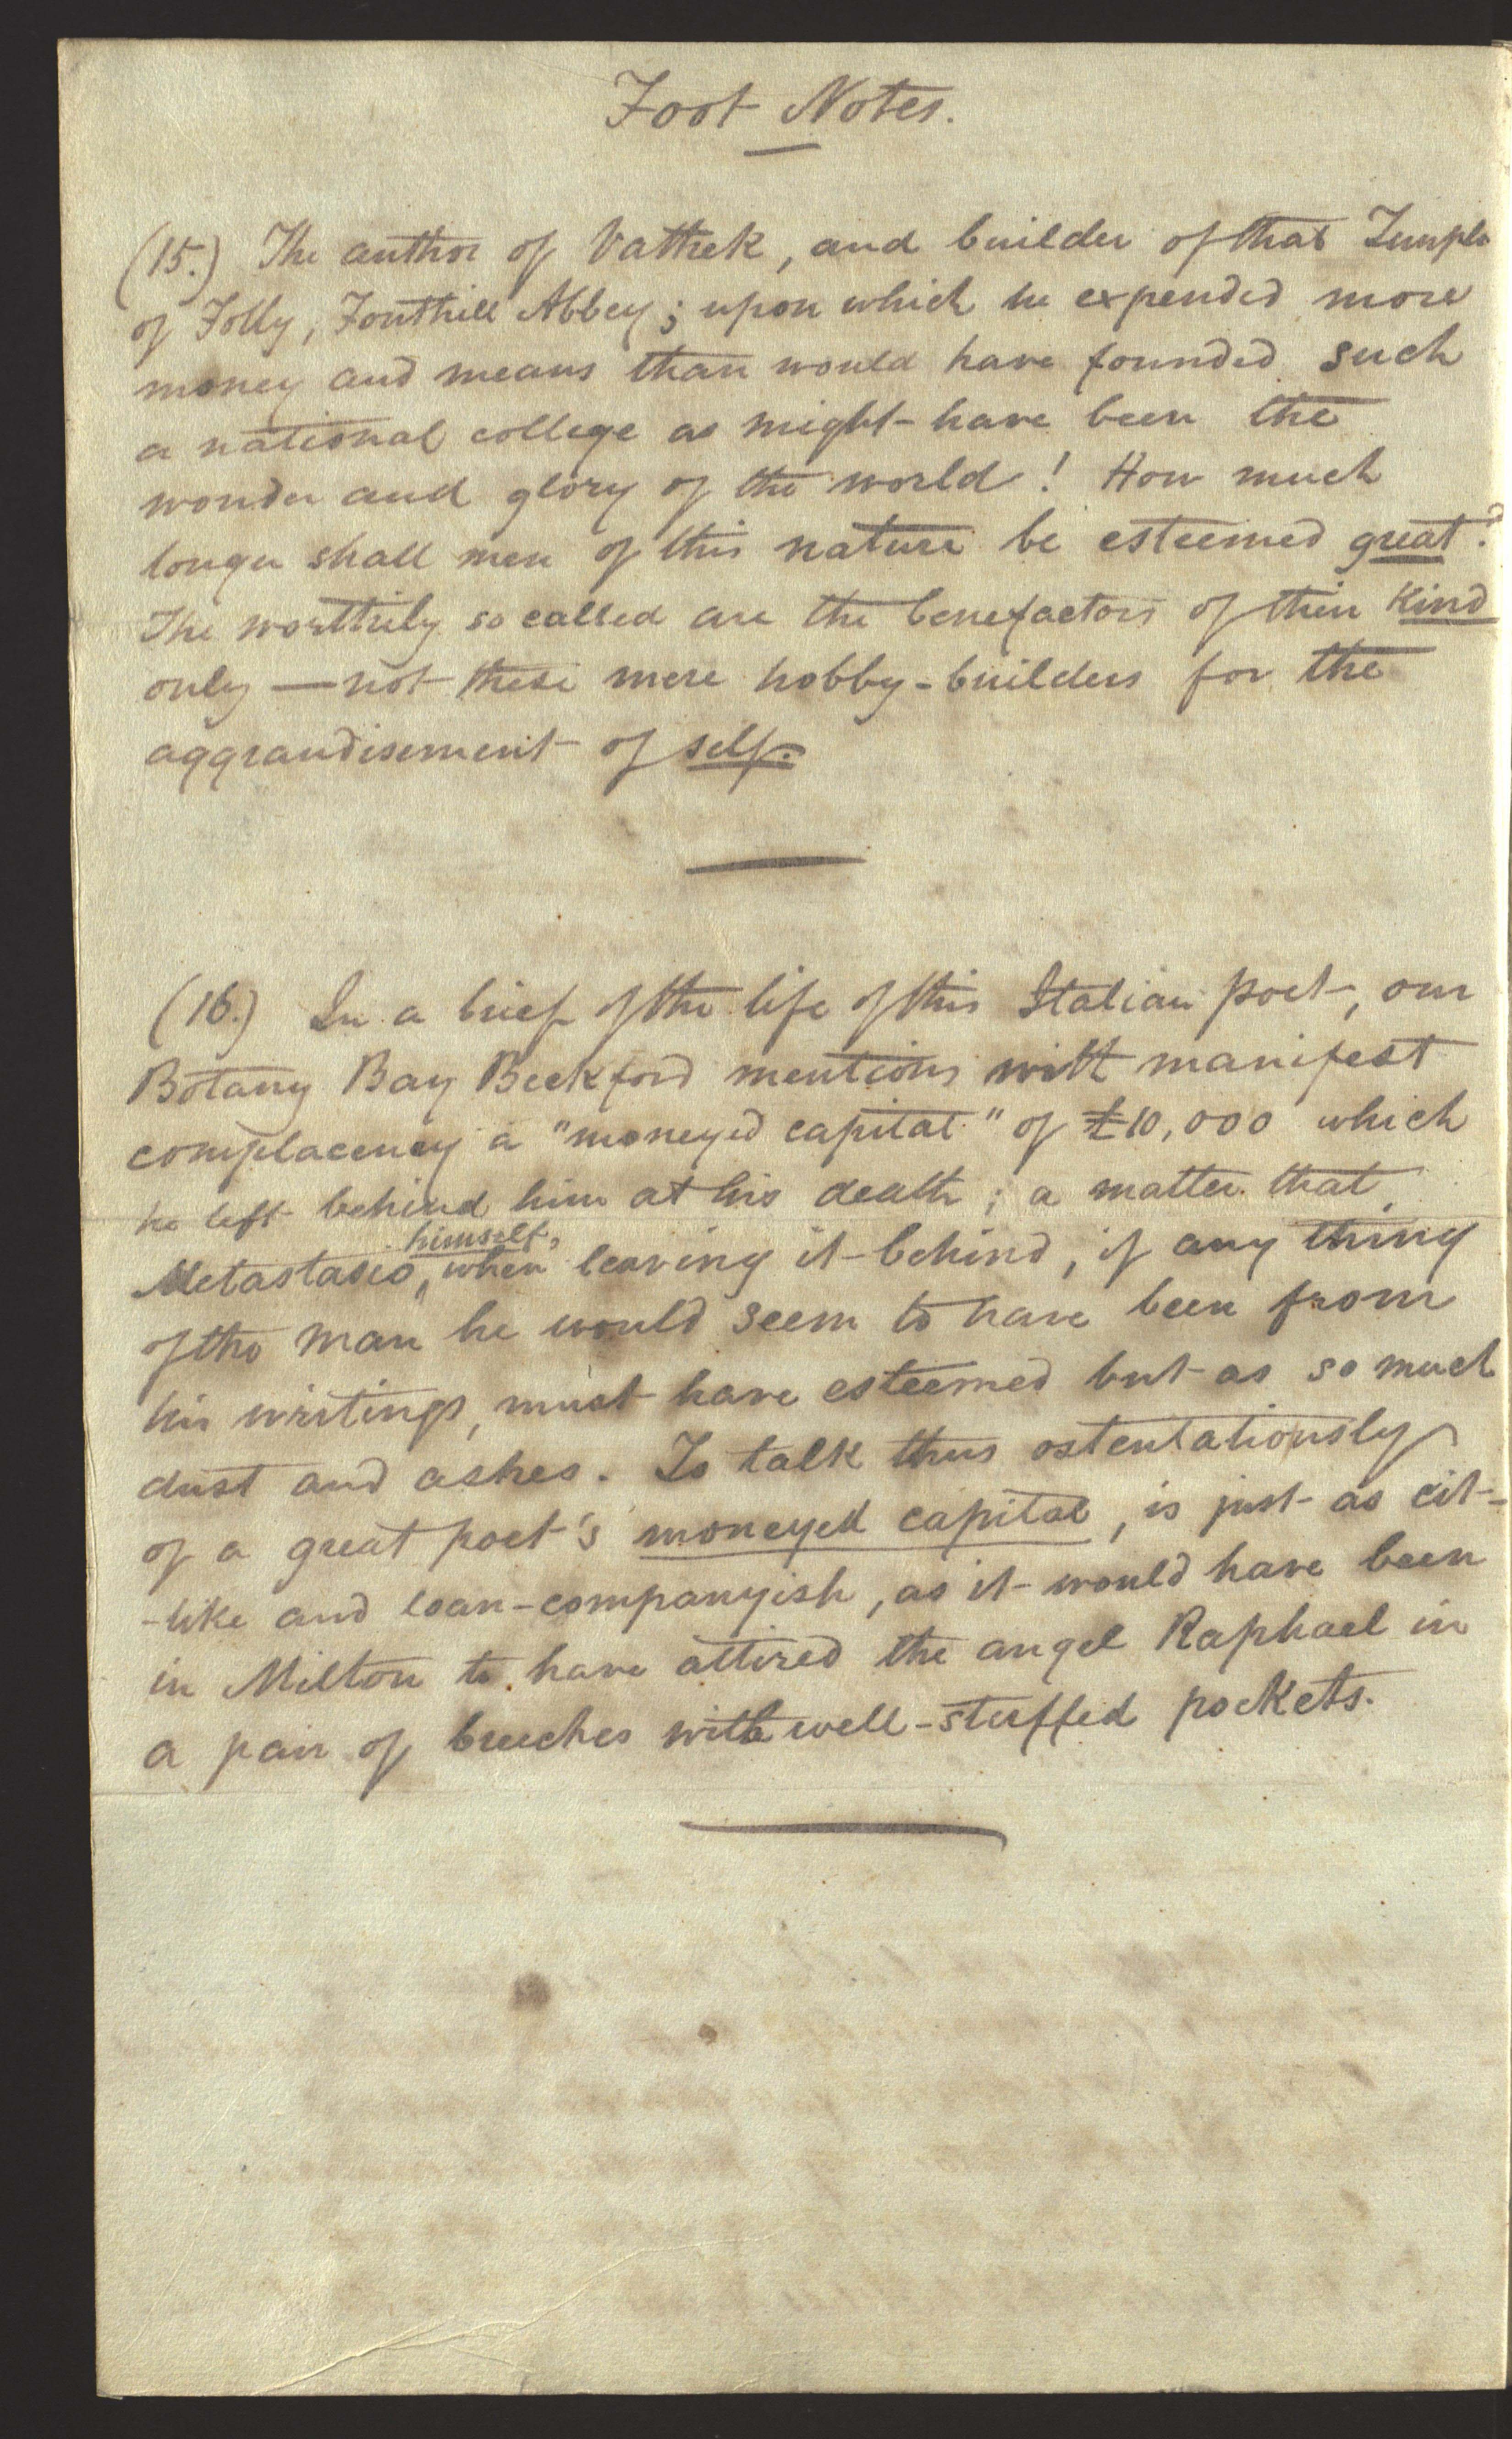 Foot Notes.
(15.) The author of Vathek, and builder of that Temple
of Folly, Fonthill Abbey; upon which he expended more
money and means than would have founded such
a national college as might have been the
wonder and glory of the world! How much
longer shall men of this nature be esteemed great?
The worthily so called are the benefactors of their kind
only — not these mere hobby-builders for the
aggrandisement of self.
(16.) In a brief of the life of this Italian poet, our
Botany Bay Beckford mentions with manifest
complacency a "moneyed capital" of £10,000 which
he left behind him at his death; a matter that,
himself,
Metastasio, when leaving it behind, if any thing
of the man he would seem to have been from
his writings, must have esteemed but as so much
dust and ashes. To talk thus ostentatiously
of a great poet's moneyed capital, is just as cit-
-like and loan-companyish, as it would have been
in Milton to have attired the angel Raphael in
a pair of breeches with well-stuffed pockets.